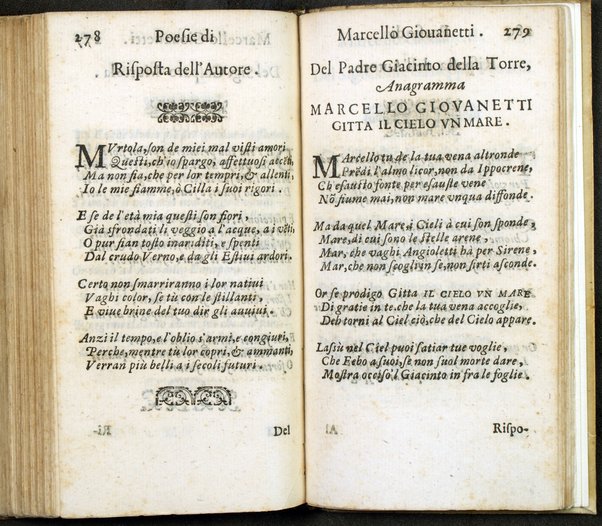 278 Poesie di
Risposta dell'Autore.
MVrtola, son de miei mal visti amori
Questi, ch'io spargo, affettuosi accẽti,
Ma non sia, che per lor tempri, & allenti,
Io le mie fiamme, ò Cilla i suoi rigori.
E se de l'età mia questi son fiori,
Già sfrondati li veggio a l'acque, a i vẽti,
O pur sian tosto inariditi, e spenti
Dal crudo Verno, e da gli Estiui ardori.
Certo non smarriranno i lor natiui
Vaghi color, se tù con le stillanti,
E viue brine del tuo dir gli auuiui.
Anzi il tempo, e l'oblio s'armi, e congiuri,
Perche, mentre tu lor copri, & ammanti,
Verran più belli a i secoli futuri.
Del
Marcello Giouanetti. 279
Del Padre Giacinto della Torre,
Anagramma
MARCELLO GIOVANETTI
GITTA IL CIELO VN MARE.
MArcello tu de la tua vena altronde
Prẽdi l'almo licor, non da Ippocrene,
Ch'esausto fonte per esauste vene
Nõ fiume mai, non mare vnqua diffonde.
Ma da quel Mare, i Cieli à cui son sponde,
Mare, di cui sono le stelle arene,
Mar, che vaghi Angioletti ha per Sirene,
Mar, che non scogli in se, non sirti asconde.
Or se prodigo Gitta IL CIELO VN MARE
Di gratie in te, che la tua vena accoglie,
Deh torni al Ciel ciò, che del Cielo appare.
Lassù nel Ciel puoi satiar tue voglie,
Che Febo a suoi, se non suol morte dare,
Mostra occiso'l Giacinto in fra le foglie.
Rispo-